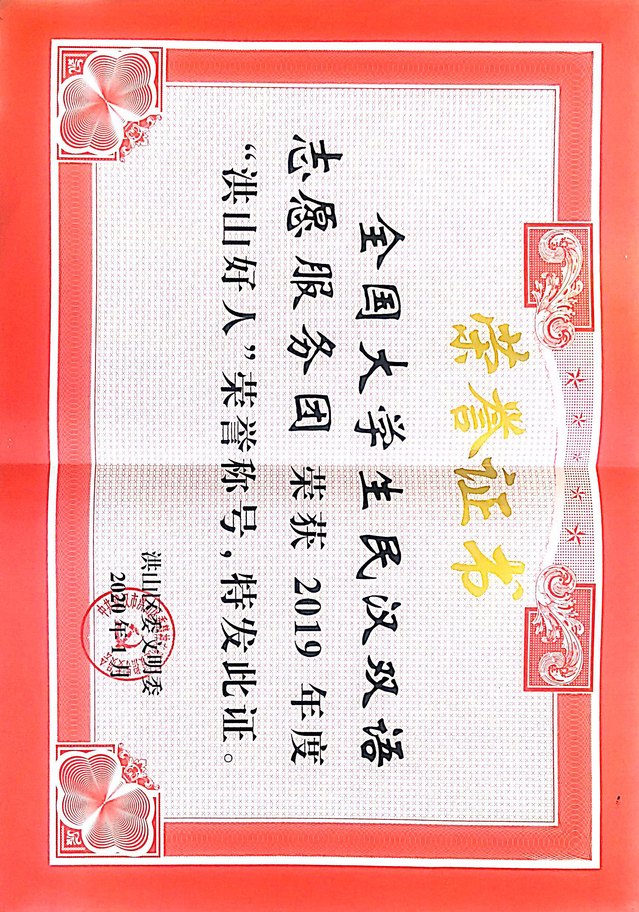 荣誉证书
全国大学生民汉双语
志愿服务团 荣获 2019 年度
“洪山好人”荣誉称号，特发此证。
洪山区委文明委
2020 年 1 月